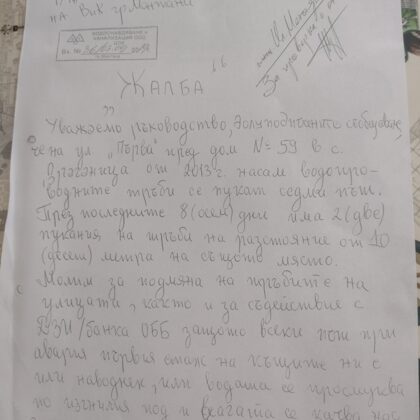 на ВиК гр. Монтана
ВОДОСНАБДЯВАНЕ И
КАНАЛИЗАЦИЯ ООД
Вх. №
ЖАЛБА
Уважаемо ръководство, долуподписаните съобщаваме,
че на ул. „Първа" пред дом № 59 в с.
от 2013 г. насам водопро-
водните тръби се пукат седми път.
През последните 8 (осем) дни има 2 (две)
пукания на тръби на разстояние от 10
(десет) метра на същото място.
Молим за подмяна на тръбите на
улицата, както и за съдействие с
ДЗИ/банка ОББ защото всеки път при
авария първия етаж на къщите ни е
или наводнен, или водата се просмуква
по изгнилия под и влагата се качва